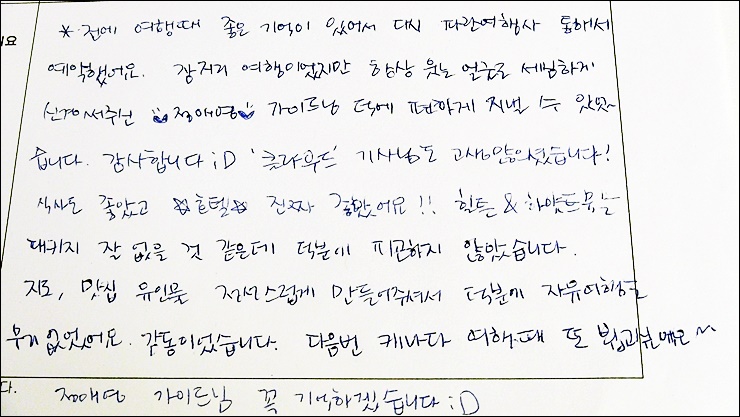 * 전에 여행때 좋은 기억이 있어서 다시 파란여행사 통해서
예약했어요. 장거리 여행이었지만 항상 웃는 얼굴로 세심하게
신경써주신 정애영 가이드님 덕에 편하게 지낼 수 있었
습니다. 감사합니다 :D '클라우드' 기사님도 고생많으셨습니다!
식사도 좋았고 호텔 진짜 좋았어요!! 힐튼 & 하얏트 묶는
패키지 잘 없을 것 같은데 덕분에 피곤하지 않았습니다.
지도, 맛집 유인물 정성스럽게 만들어주셔서 덕분에 자유여행도
무리 없었어요. 감동이었습니다. 다음번 캐나다 여행때 또
다. 정애영 가이드님 꼭 기억하겠습니다 :D